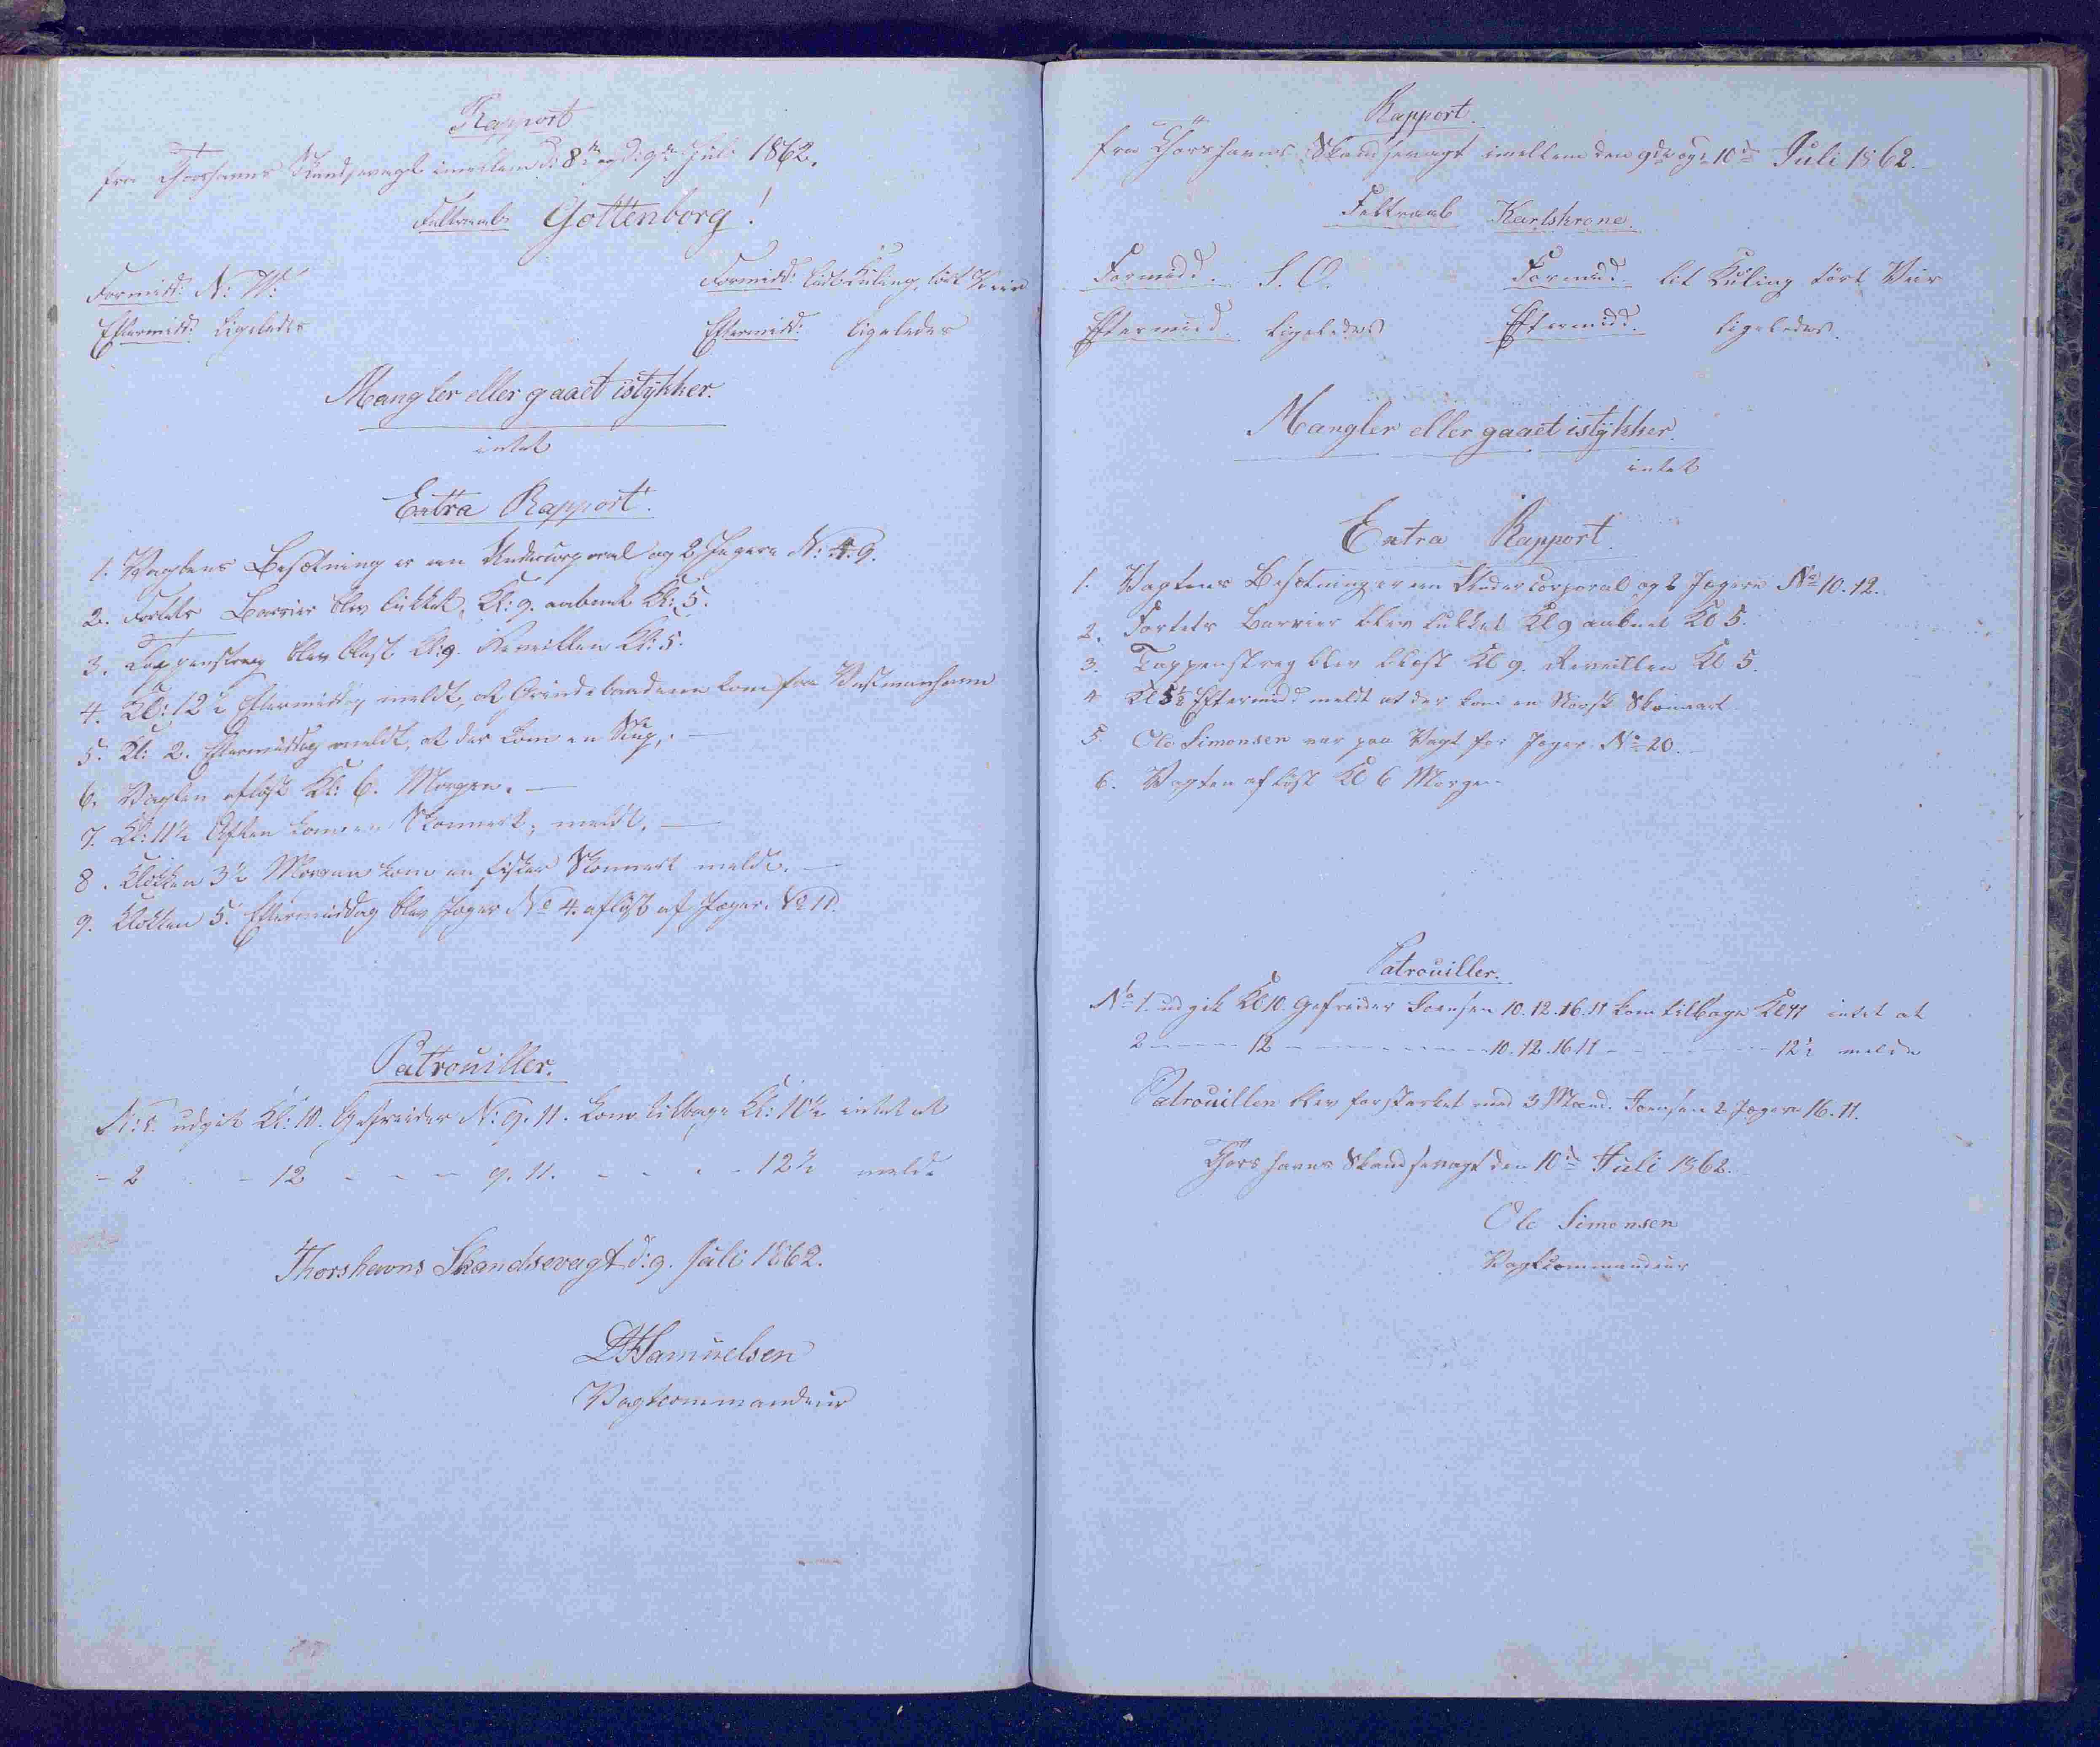 Rapport
fra Thorshavns Skandsevagt imellem d: 8de og d: 9de Juli 1862.
Feltraab Gottenborg!
Formidd: N: W: Formidd: lidt Kuling, tört Veir
Eftermidd: ligeledes Eftermidd: ligeledes
Mangler eller gaaet istÿkker.
intet
Extra Rapport.
1. Vagtens Besætning er een Undercorporal og 2 Jægere N: 4. 9.
2. Fortets Barrier blev lukket Kl: 9. aabnet Kl: 5.
3. Tappenstreg blev blæst Kl: 9. Reveillen Kl: 5.
4. Kl: 12½ Eftermiddag meldt, at Grindebaadene kom fra Vestmanhavn
5. Kl: 2. Eftermiddag meldt, at der kom en
6. Vagten aflöst Kl: 6. Morgen. —
7. Kl: 11½ Aften kom en Skonnert, meldt. —
8. Klokken 3½ Morgen kom en fisker Skonnert meldt. —
9. Klokken 5. Eftermiddag blev Jæger No 4. aflöst af Jæger No 11.
Patrouiller.
N: 1. udgik Kl: 10. Gefreider N: 9. 11. kom tilbage Kl: 10½ intet at
- 2 - - 12 - - - 9. 11. - - - - 12½ melde
Thorshavns Skandsevagt d: 9. Juli 1862.
Samuelsen
Vagtcommandeur
Rapport.
fra Thorshavns Skandsevagt imellem den 9de og 10de Juli 1862.
Feltraab Karlskrone.
Formidd. S. O. Formidd. lit Kuling tört Veir
Eftermidd. ligeledes Eftermidd. ligeledes.
Mangler eller gaaet istÿkker.
intet
Extra Rapport.
1. Vagtens Besætning er een Undercorporal og 2 Jægere No 10. 12.
2. Fortets Barrier blev lukket Kl 9 aabnet Kl 5.
3. Tappenstreg blev blæst Kl 9. Reveillen Kl 5.
4 Kl 5½ Eftermidd meldt at der kom en Norsk Skonnert
5. Ole Simonsen var paa Vagt for Jæger No 20. —
6. Vagten aflöst Kl 6 Morgen
Patrouiller.
No 1. udgik Kl 10. Gefreider Joensen 10. 12. 16. 11 kom tilbage Kl 11 intet at
2 - - - - 12 - - - - - - - - 10. 12. 16 11 - - - - - - 12½ melde
Patrouillen blev forstærket med 3 Mand. Joensen 2 Jægere 16. 11.
Thorshavns Skandsevagt den 10de Juli 1862.
Ole Simonsen
Vagtcommandeur